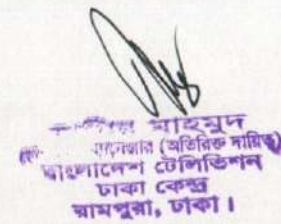 মাহমুদ
ম্যানেজার (অতিরিক্ত দায়িত্ব)
বাংলাদেশ টেলিভিশন
ঢাকা কেন্দ্র
রামপুরা, ঢাকা।